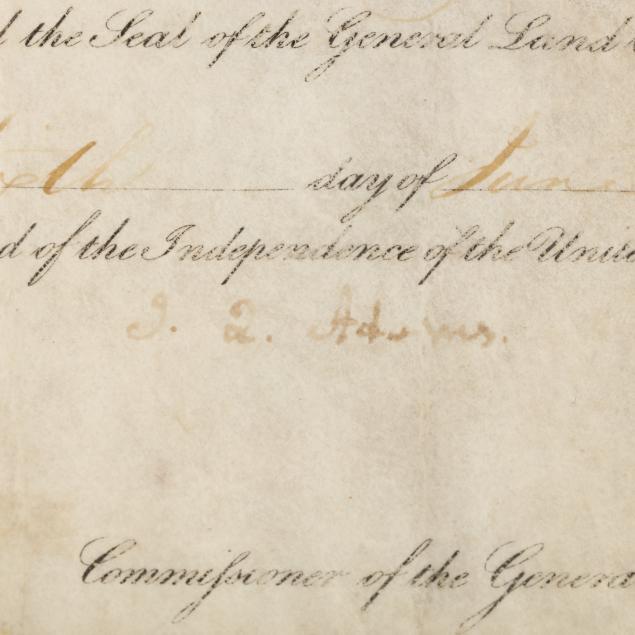 the Seal of the General Land
day of June
of the Independence of the United
J. Q. Adams.
Commissioner of the General